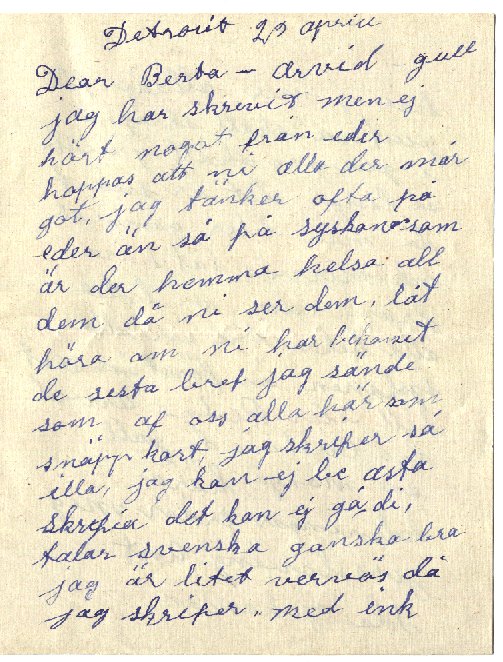 Detroit 23 april
Dear Berta - Arvid gull
jag har skrevit men ej
hört nogot från eder
hoppas att ni alla der mår
got, jag tänker ofta på
eder än så på syskon som
är der hemma helsa all
dem då ni ser dem, låt
höra om ni har bekomet
de sesta bref jag sände
som af oss alla här som
snäpp kort, jag skrifer så
illa, jag kan ej be Asta
skrifva det kan ej gå, di,
talar svenska ganska bra
jag är litet vervös då
jag skrifer. med ink